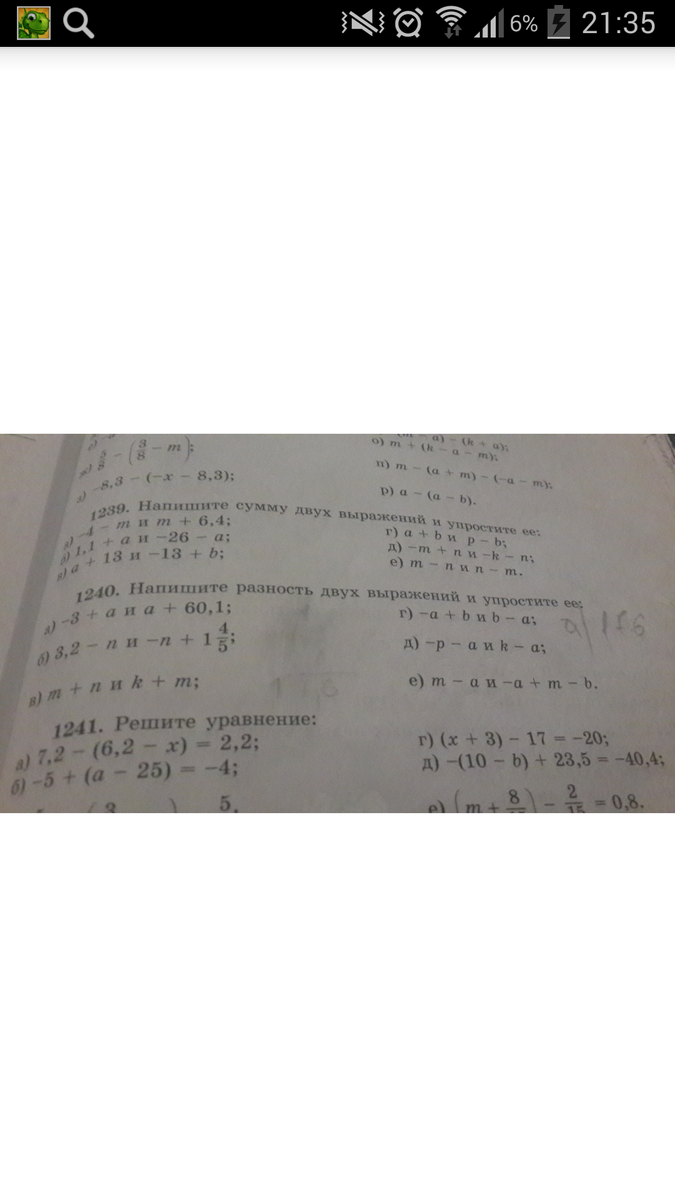 6% 21:35
5/8 − (3/8 − m);
−8,3 − (−x − 8,3);
− (k + a);
о) m + (k − a − m);
п) m − (a + m) − (−a − m);
р) a − (a − b).
1239. Напишите сумму двух выражений и упростите ее:
а) −4 − m и m + 6,4;
б) 1,1 + a и −26 − a;
в) a + 13 и −13 + b;
г) a + b и p − b;
д) −m + n и −k − n;
е) m − n и n − m.
1240. Напишите разность двух выражений и упростите ее:
а) −3 + a и a + 60,1;
б) 3,2 − n и −n + 1 4/5;
в) m + n и k + m;
г) −a + b и b − a;
д) −p − a и k − a;
е) m − a и −a + m − b.
1241. Решите уравнение:
а) 7,2 − (6,2 − x) = 2,2;
б) −5 + (a − 25) = −4;
г) (x + 3) − 17 = −20;
д) −(10 − b) + 23,5 = −40,4;
е) (m + 8/ ) − 2/15 = 0,8.